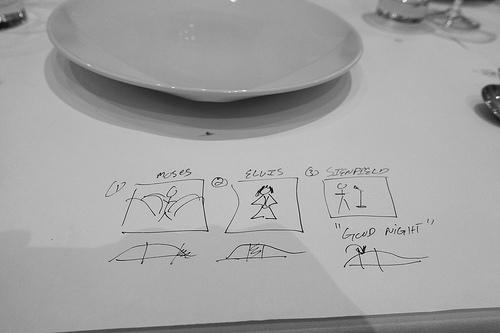 (1) MOSES (2) ELVIS (3) SIENFIELD
"GOOD NIGHT"